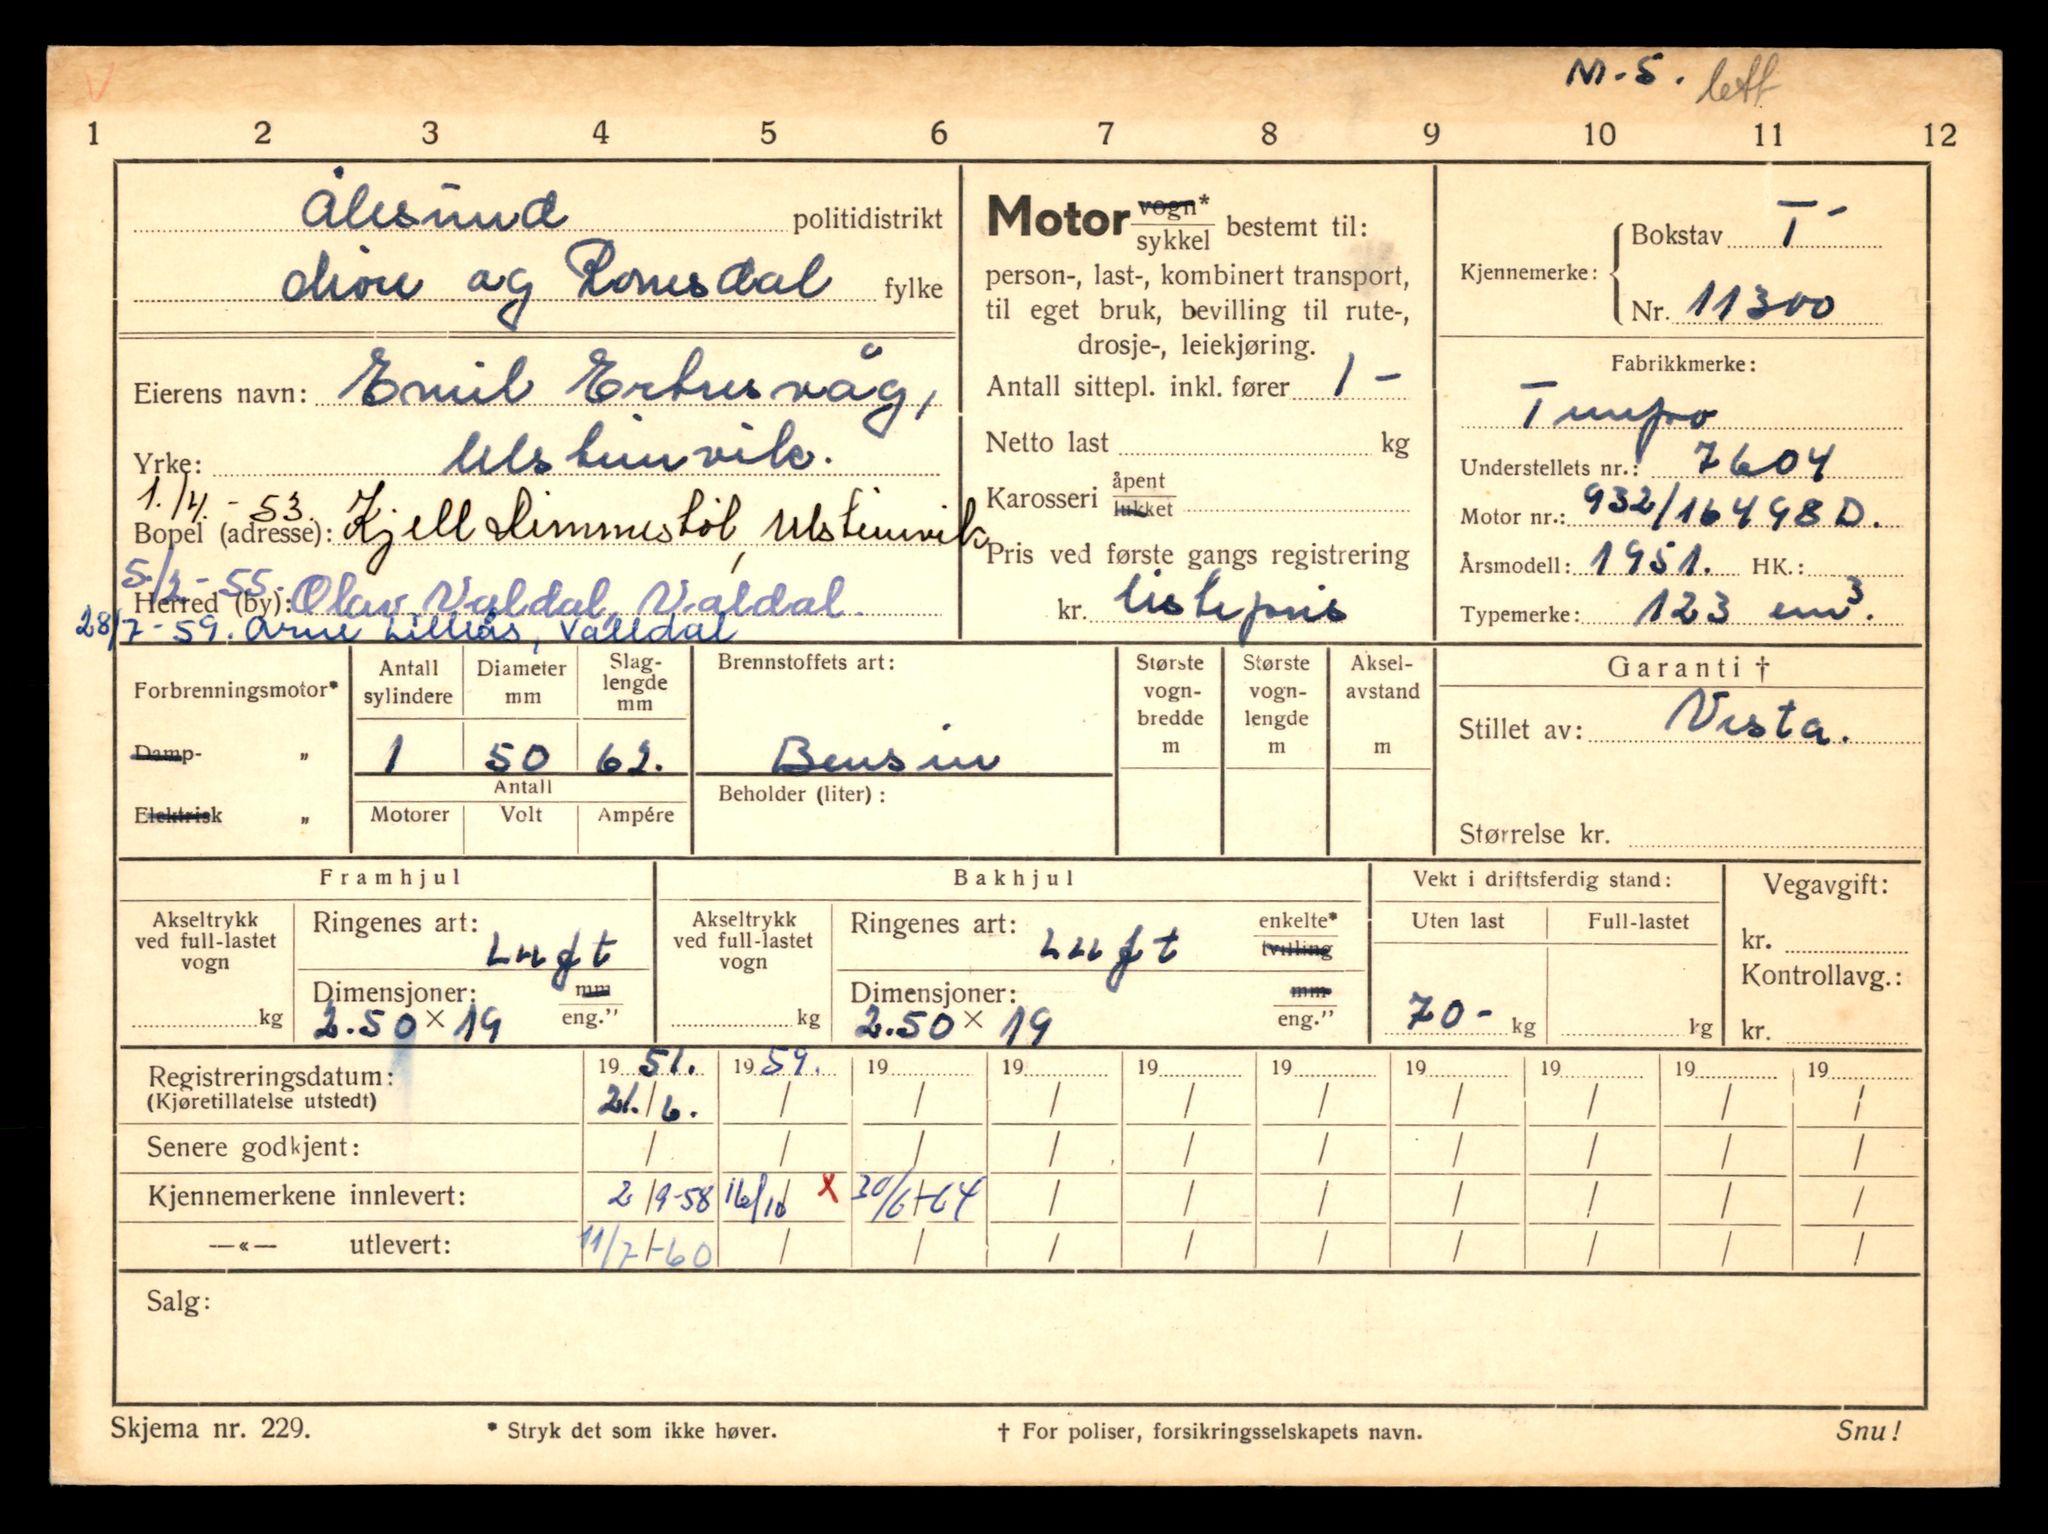 M-5. lett
1 2 3 4 5 6 7 8 9 10 11 12
Ålesund politidistrikt
Møre og Romsdal fylke
Eierens navn: Emil Ertresvåg,
Yrke: Ulsteinvik.
1./4. - 53.
Bopel (adresse): Kjell Dimmestøl, Ulsteinvik
5./2 - 55. Olav Valdal, Valdal.
Herred (by):
28/7-59. Arne Lilleås, Valldal
Motor vogn* sykkel bestemt til:
person-, last-, kombinert transport,
til eget bruk, bevilling til rute-,
drosje-, leiekjøring.
Antall sittepl. inkl. fører 1 -
Netto last kg
Karosseri åpent lukket
Pris ved første gangs registrering
kr. listepris
Kjennemerke: Bokstav T-
Nr. 11300
Fabrikkmerke:
Tempo
Understellets nr.: 7604
Motor nr.: 932/16498D.
Årsmodell: 1951. HK.:
Typemerke: 123 cm³.
Forbrenningsmotor*
Damp- „
Elektrisk „
Antall sylindere 1
Diameter mm 50
Slag-lengde mm 62.
Antall
Motorer Volt Ampére
Brennstoffets art:
Bensin
Beholder (liter) :
Største vogn-bredde m
Største vogn-lengde m
Aksel-avstand m
Garanti †
Stillet av: Vesta.
Størrelse kr.
Framhjul
Akseltrykk ved full-lastet vogn
kg
Ringenes art: Luft
Dimensjoner: mm eng."
2.50 × 19
Bakhjul
Akseltrykk ved full-lastet vogn
kg
Ringenes art: Luft enkelte* tvilling
Dimensjoner: mm eng."
2.50 × 19
Vekt i driftsferdig stand:
Uten last Full-lastet
70- kg kg
Vegavgift:
kr.
Kontrollavg.:
kr.
Registreringsdatum: 19 51. 19 59. 19 19 19 19 19 19 19 19
(Kjøretillatelse utstedt) 21./6. / / / / / / / / /
Senere godkjent: / / / / / / / / / /
Kjennemerkene innlevert: 2/9-58 16/10 X 30/6-64 / / / / / / /
—«— utlevert: 11/7-60 / / / / / / / / /
Salg:
Skjema nr. 229. * Stryk det som ikke høver. † For poliser, forsikringsselskapets navn. Snu!